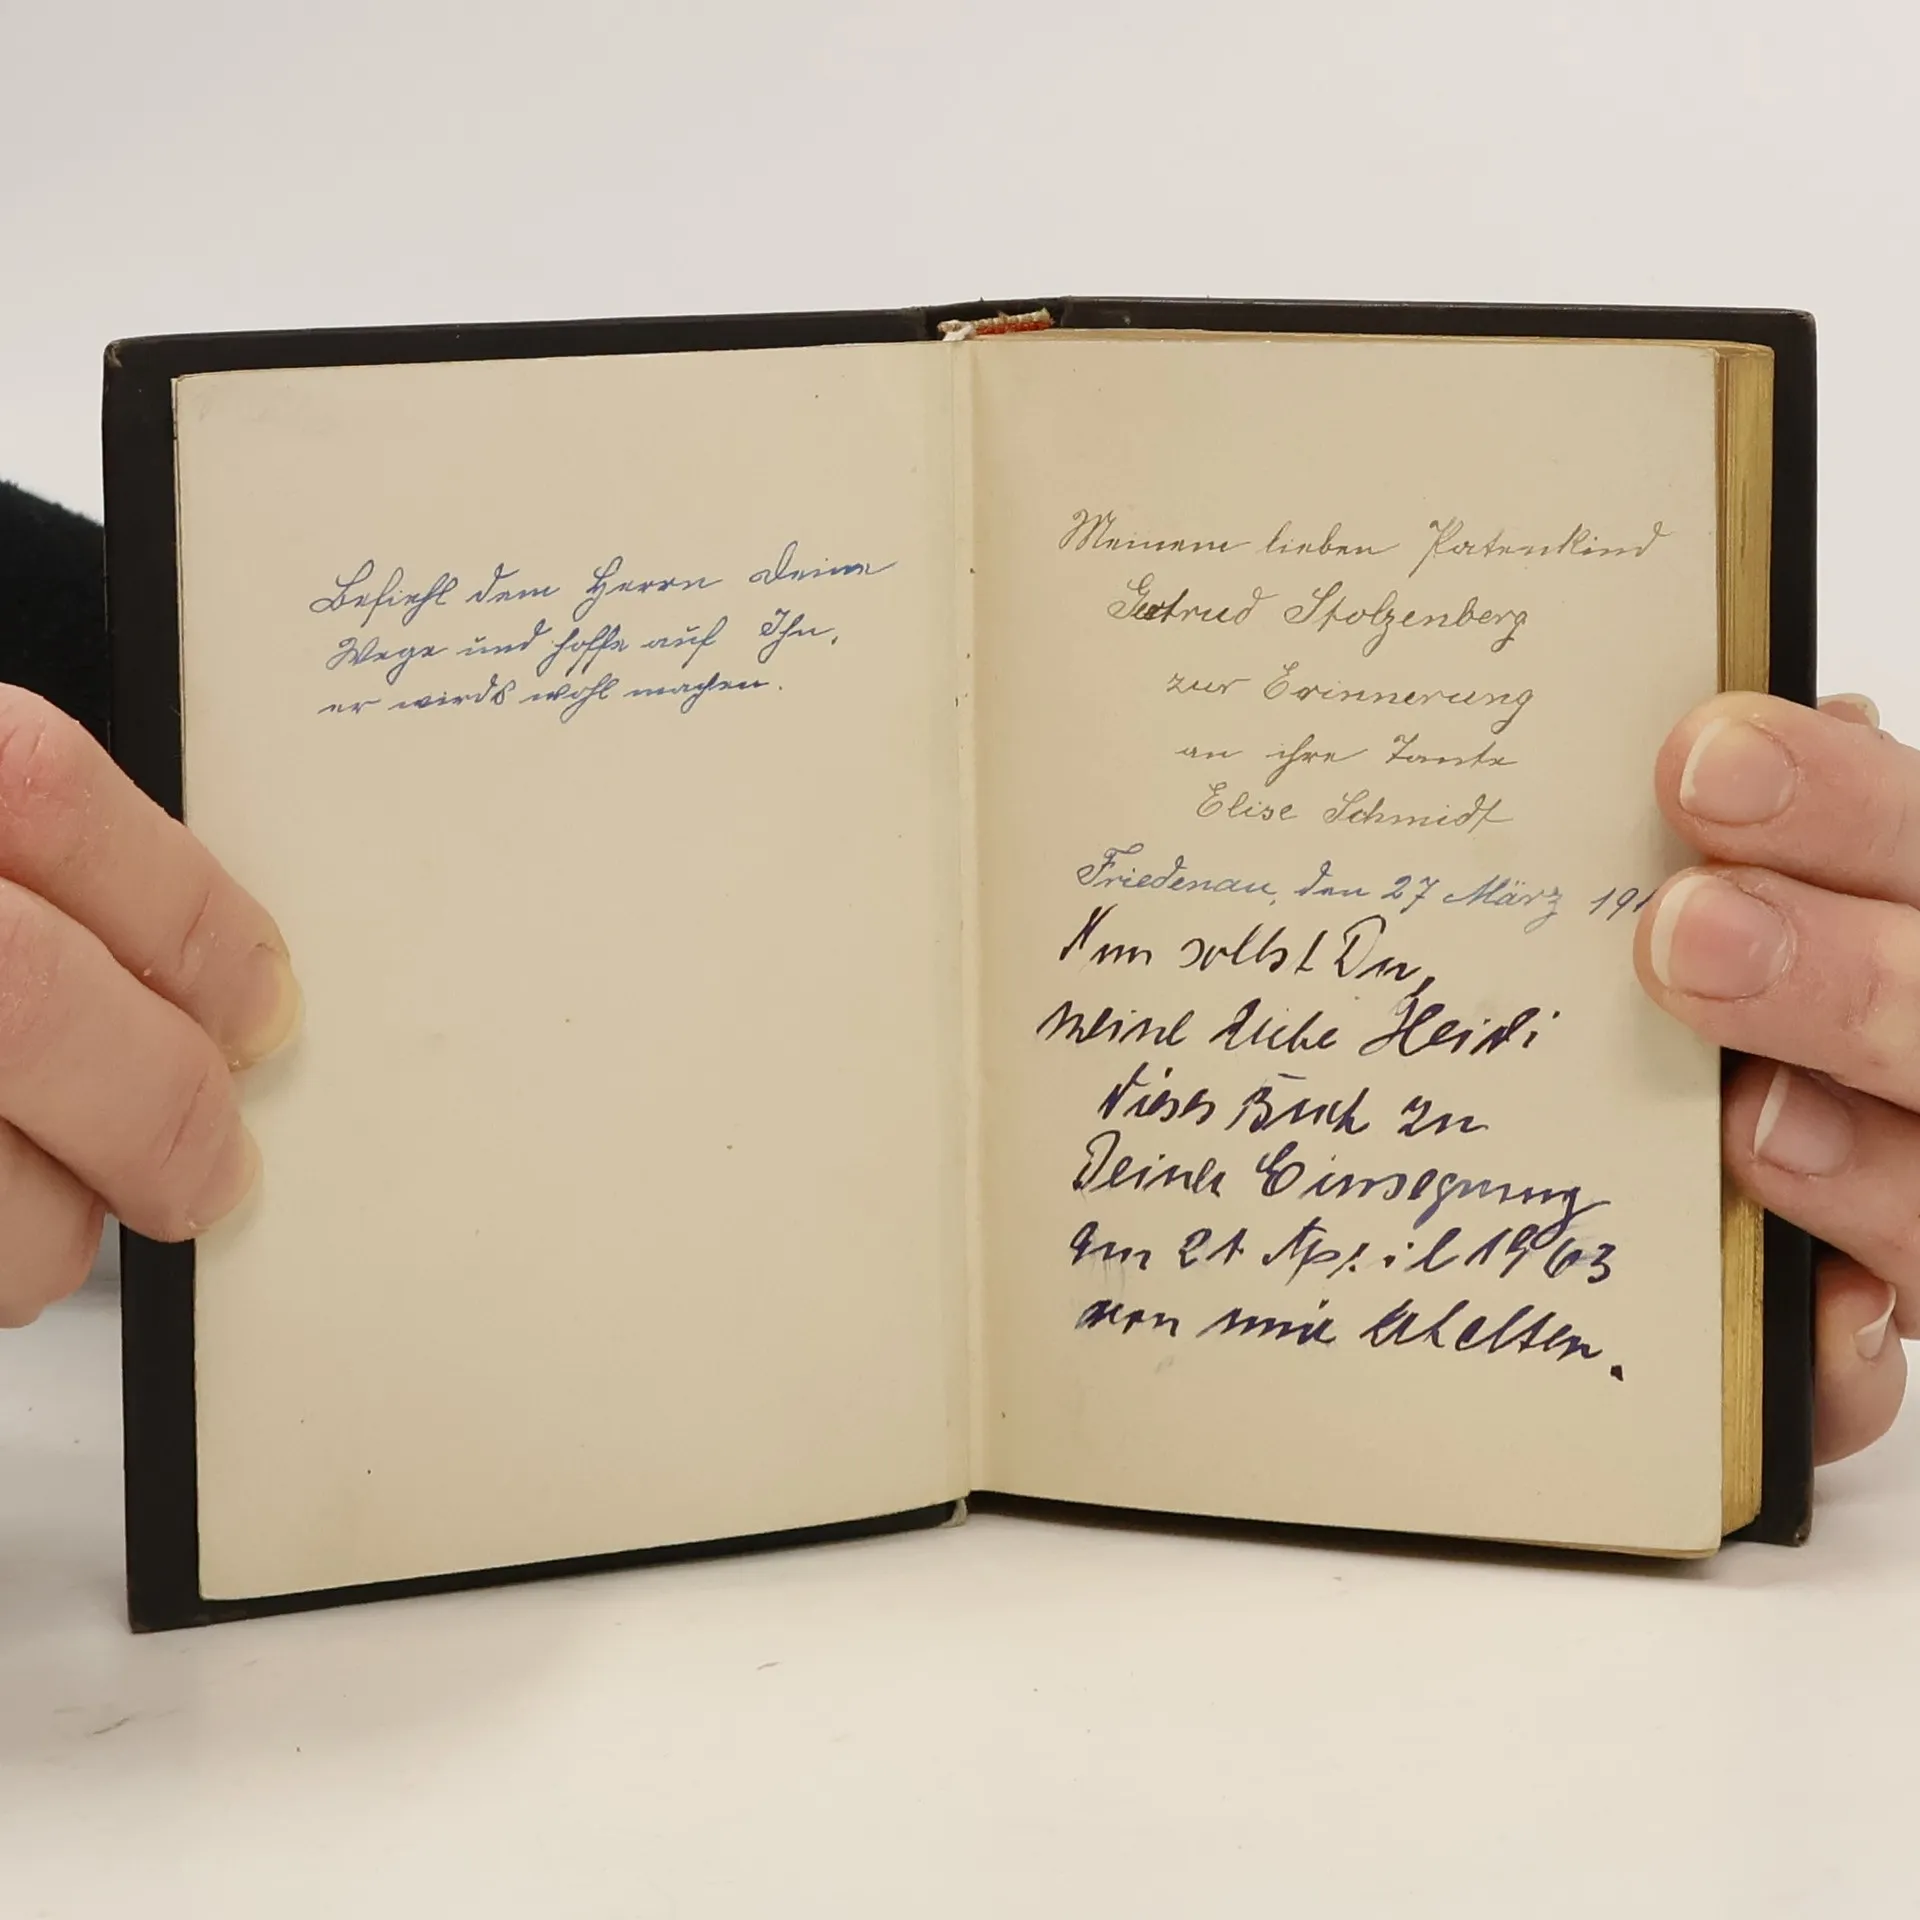 Befiehl dem Herrn Deine
Wege und hoffe auf Ihn,
er wirds wohl machen.
Meinem lieben Patenkind
Gertrud Stolzenberg
zur Erinnerung
an ihre Tante
Elise Schmidt
Friedenau, den 27 März 191
Nun sollst Du,
meine liebe Heidi
dieses Buch zu
Deiner Einsegnung
am 21 April 1963
von mir erhalten.